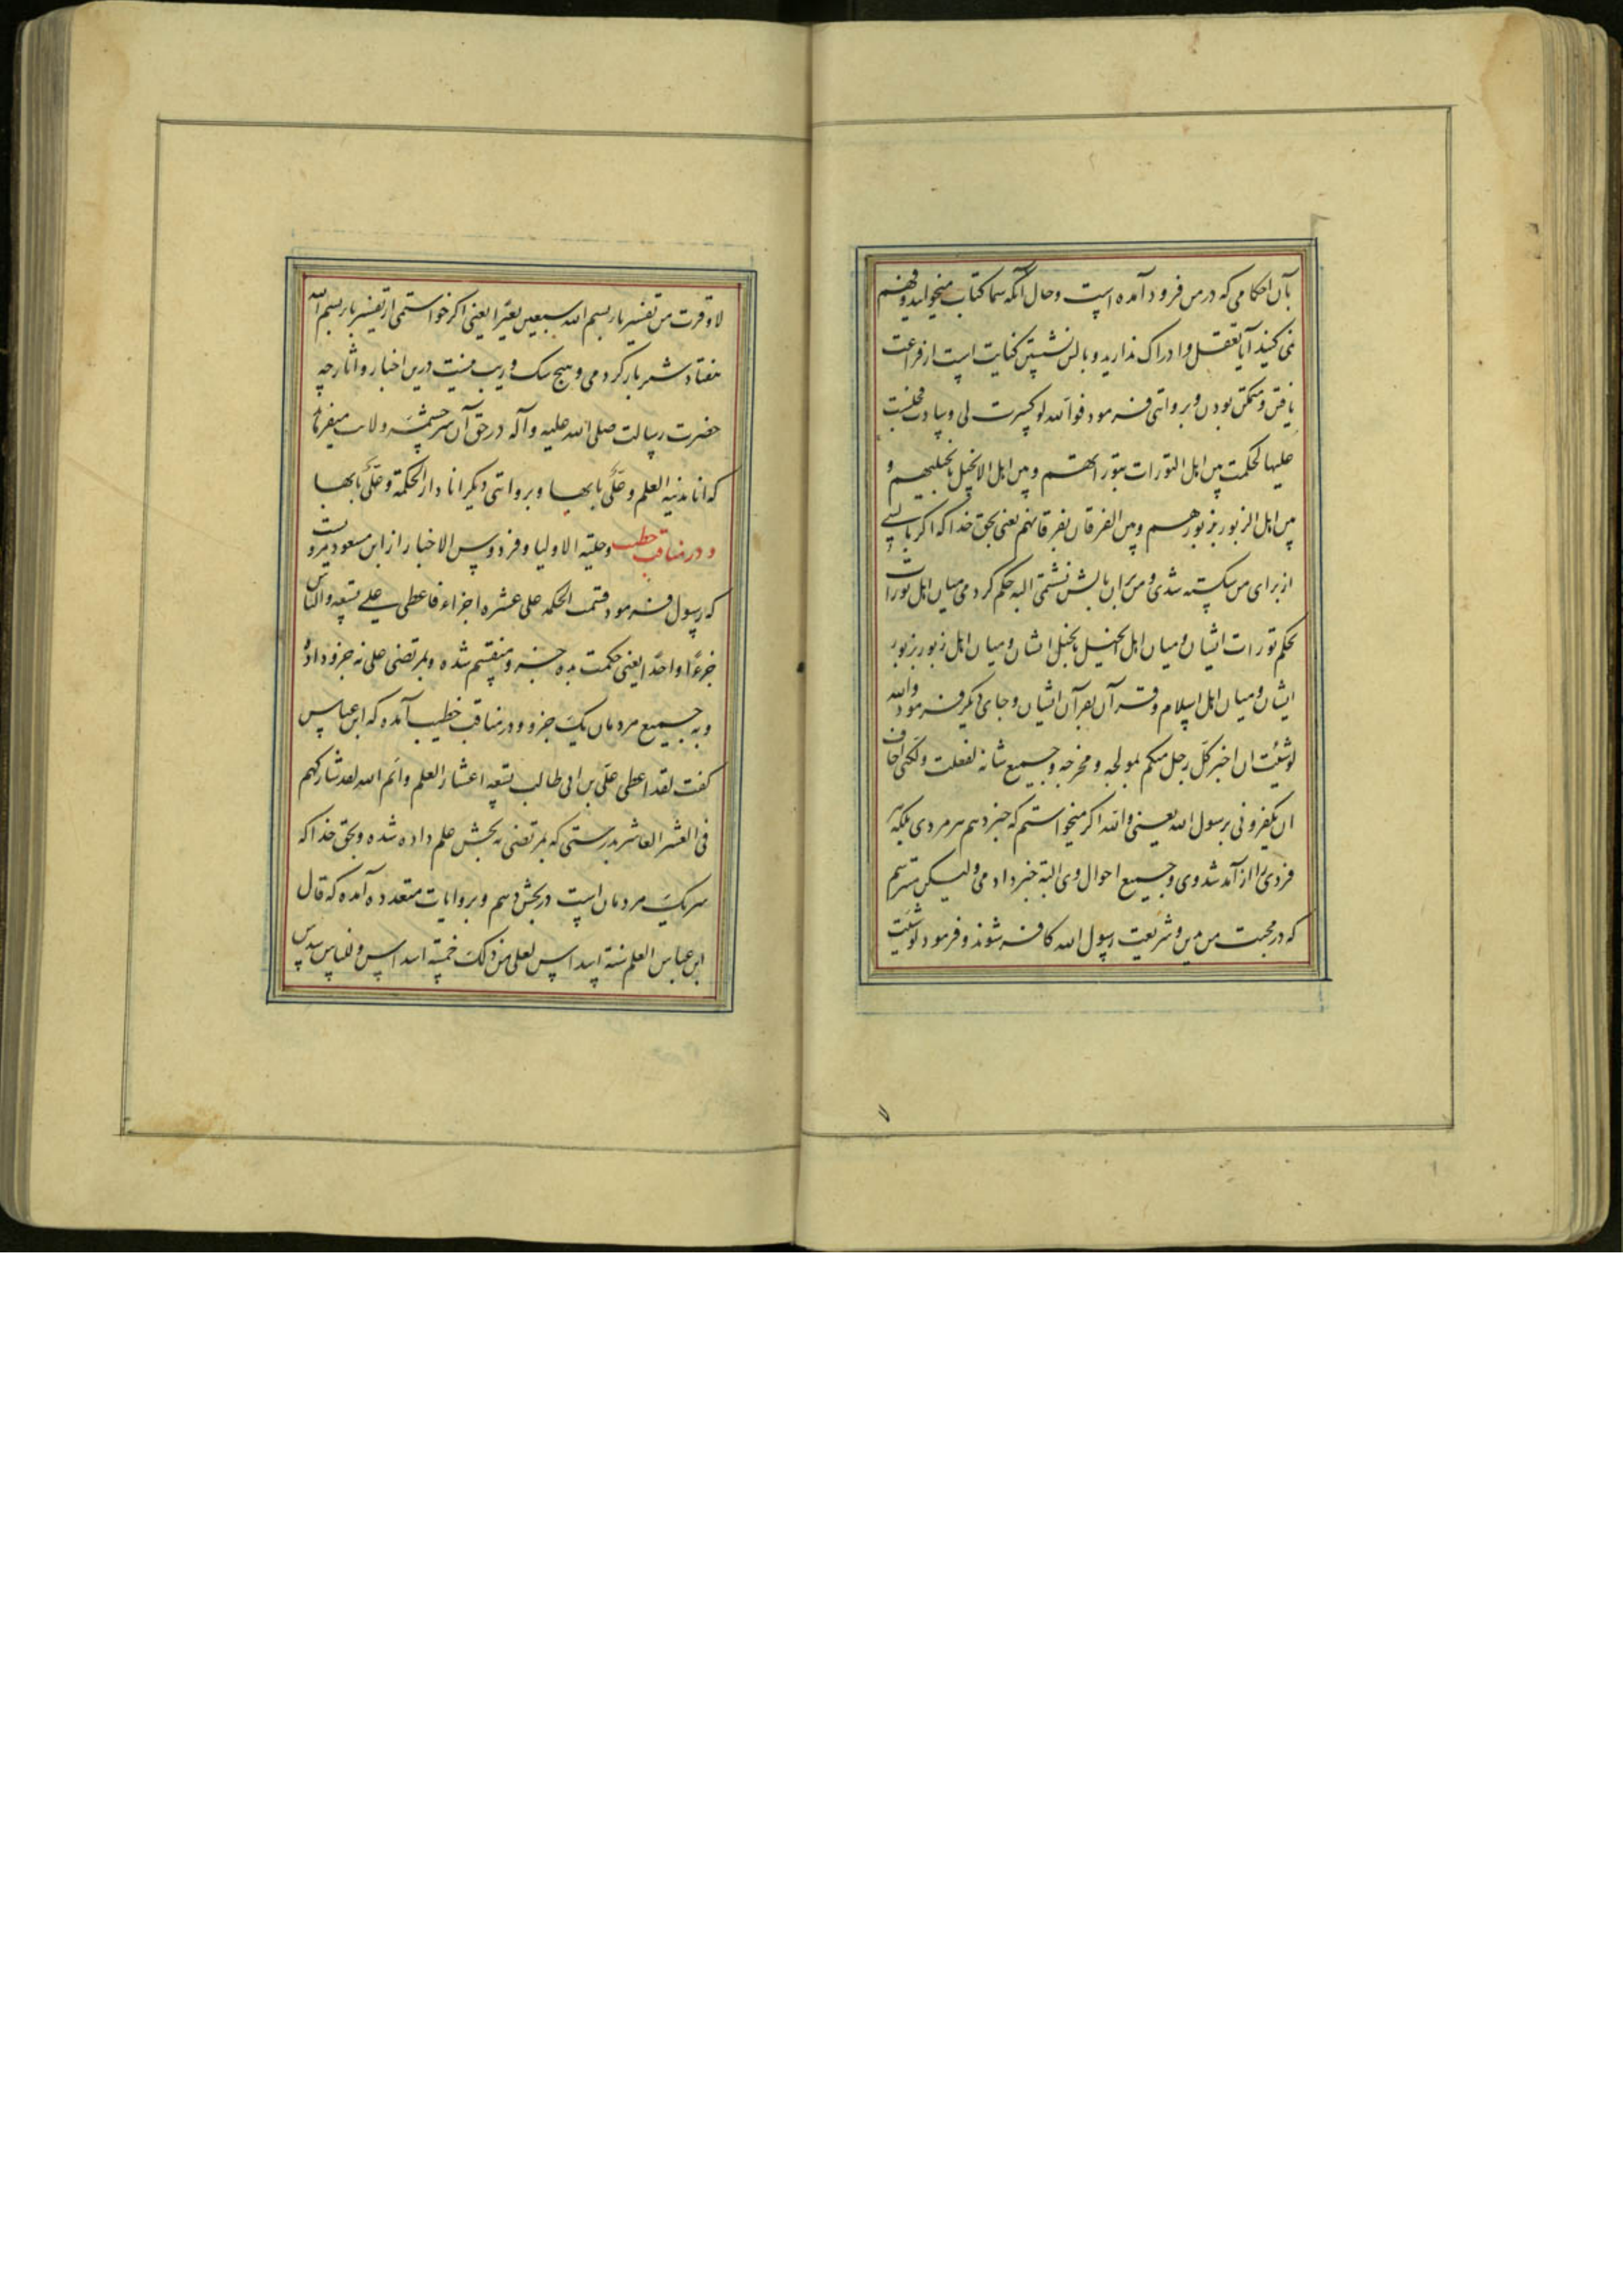 بآن احکامی که در من فرود آمده است و حال آنکه شما کتاب میخوانید و فهم
نمی کنید آیا تعقل و ادراک ندارید و بالش نشستن کنایت است از فراغت
یافتن و متمکن بودن و بروایتی فرمود فوالله لو کسرت لی وسادت فجلست
علیها لحکمت بین اهل التورات بتوراتهم و بین اهل الانجیل بانجیلهم و
بین اهل الزبور بزبورهم و بین الفرقان بفرقانهم یعنی بحق خدا که اگر بالشی
از برای من شکسته شدی و من بران بالش نشستمی البته حکم کردمی میان اهل تورات
بحکم تورات ایشان و میان اهل انجیل بانجیل ایشان و میان اهل زبور بزبور
ایشان و میان اهل اسلام و قرآن بقرآن ایشان و جای دیگر فرمود والله
لو شئت ان اخبر کل رجل منکم بمولجه و مخرجه و جمیع شانه لفعلت ولکنی اخاف
ان یکفرونی برسول الله یعنی والله اگر میخواستم که خبر دهم هر مردی بلکه هر
فردی را از آمد شد وی و جمیع احوال وی البته خبر دادمی ولیکن میترسم
که در محبت من بدین و شریعت رسول الله کافر شوند و فرمود لو شئت
لاوقرت من تفسیر باء بسم الله سبعین بعیرا یعنی اگر خواستمی از تفسیر باء بسم الله
هفتاد شتر بار کردمی و هیچ شک و ریب نیست درین اخبار و آثار چه
حضرت رسالت صلی الله علیه و آله در حق آن سرچشمه ولایت میفرماید
که انا مدینة العلم و علی بابها و بروایتی دیگر انا دار الحکمة و علی بابها
و در مناقب خطیب و حلیة الاولیا و فردوس الاخبار از ابن مسعود مرویست
که رسول فرمود قسمت الحکمه علی عشره اجزاء فاعطی علی تسعه والناس
جزءًا واحدًا یعنی حکمت بده جزو منقسم شده و بمرتضی علی نه جزو داده
و به جمیع مردمان یک جزو و در مناقب خطیب آمده که ابن عباس
گفت لقد اعطی علی بن ابی طالب تسعه اعشار العلم و ایم الله لقد شارکهم
فی العشر العاشر بدرستی که بمرتضی نه بخش علم داده شده و بحق خدا که
شریک مردمان است در بخش دهم و بروایات متعدده آمده که قال
ابن عباس العلم ستة اسداس لعلی من ذلک خمسة اسداس و للناس سدس